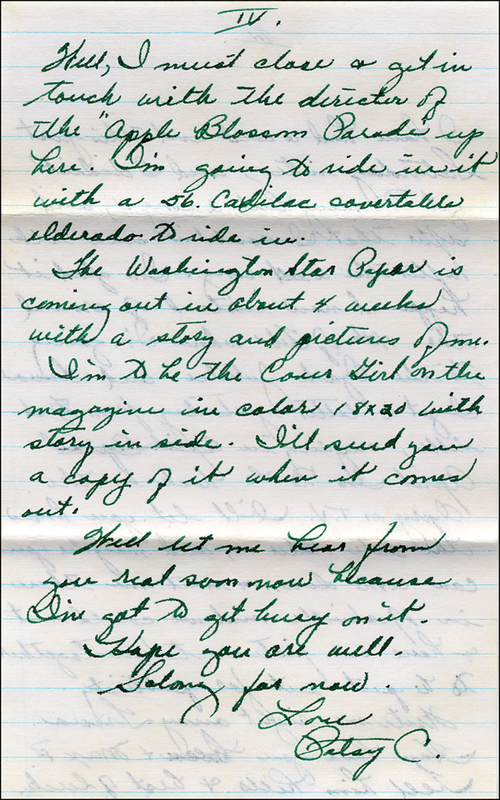 IV.
Well, I must close & get in
touch with the director of
the "Apple Blossom Parade" up
here. I'm going to ride in it
with a 56. Cadilac covertable
elderado to ride in.
The Washington Star Paper is
coming out in about 4 weeks
with a story and pictures of me.
I'm to be the Cover Girl on the
magazine in color 18x20 with
story in side. I'll send you
a copy of it when it comes
out.
Well let me hear from
you real soon now because
I've got to get busy on it.
Hope you are well.
Solong for now.
Love
Betsy C.